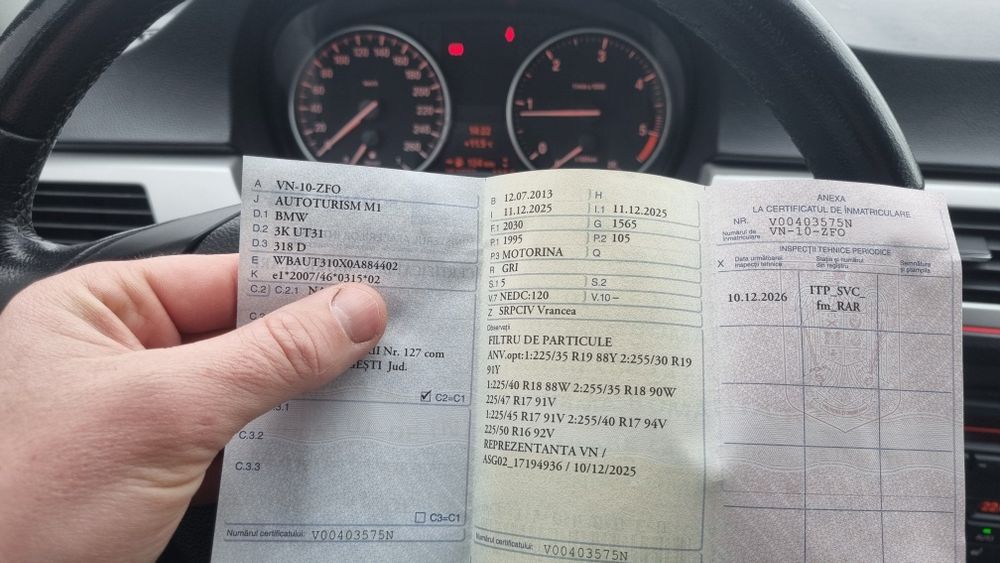 20 40 60 80 100 120 140 160 180 200 220 240 260
km/h
0 1 2 3 4 5
14:22
+11.5
104 km
A VN-10-ZFO
J AUTOTURISM M1
D.1 BMW
D.2 3K UT31
D.3 318 D
E WBAUT310X0A884402
K e1*2007/46*0315*02
C.2) C.2.1
Nr. 127 com
Jud.
C2=C1
C.3.2
C.3.3
C3=C1
Numărul certificatului: V00403575N
B 12.07.2013 H
I 11.12.2025 I.1 11.12.2025
F.1 2030 G 1565
P.1 1995 P.2 105
P.3 MOTORINA Q
R GRI
S.1 5 S.2
V.7 NEDC:120 V.10 –
Z SRPCIV Vrancea
Observații
FILTRU DE PARTICULE
ANV.opt:1:225/35 R19 88Y 2:255/30 R19
91Y
1:225/40 R18 88W 2:255/35 R18 90W
225/47 R17 91V
1:225/45 R17 91V 2:255/40 R17 94V
225/50 R16 92V
REPREZENTANTA VN /
ASG02_17194936 / 10/12/2025
Numărul certificatului: V00403575N
ANEXA
LA CERTIFICATUL DE ÎNMATRICULARE
NR. V00403575N
Numărul de înmatriculare: VN-10-ZFO
INSPECȚII TEHNICE PERIODICE
X Data următoarei inspecții tehnice Stația și numărul din registru Semnătura și ștampila
10.12.2026 ITP_SVC_
fm_RAR